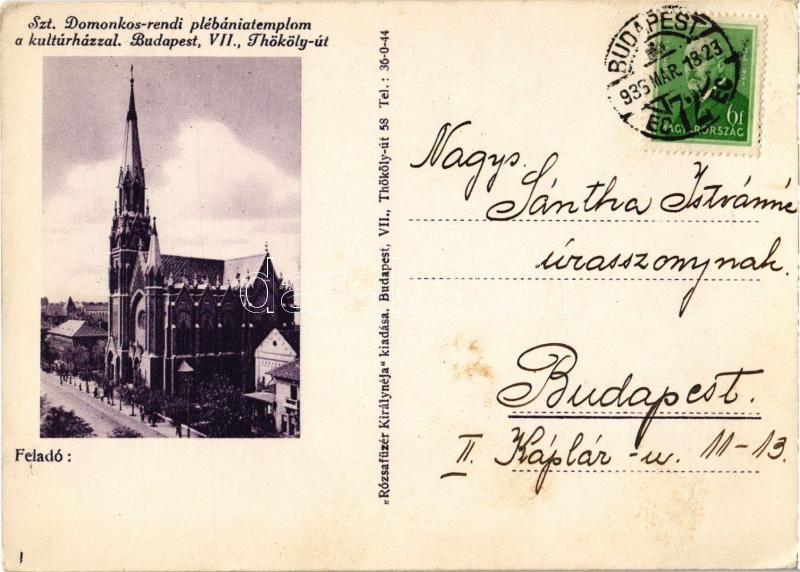 Szt. Domonkos-rendi plébániatemplom
a kultúrházzal. Budapest, VII., Thököly-út
Feladó :
„Rózsafüzér Királynéja" kiadása. Budapest, VII., Thököly-út 58 Tel.: 36-0-44
BUDAPEST
935 MAR. 18 23
6f
MAGYARORSZÁG
Nagys.
Sántha Istvánné
úrasszonynak.
Budapest.
II. Káplár-u. 11-13.